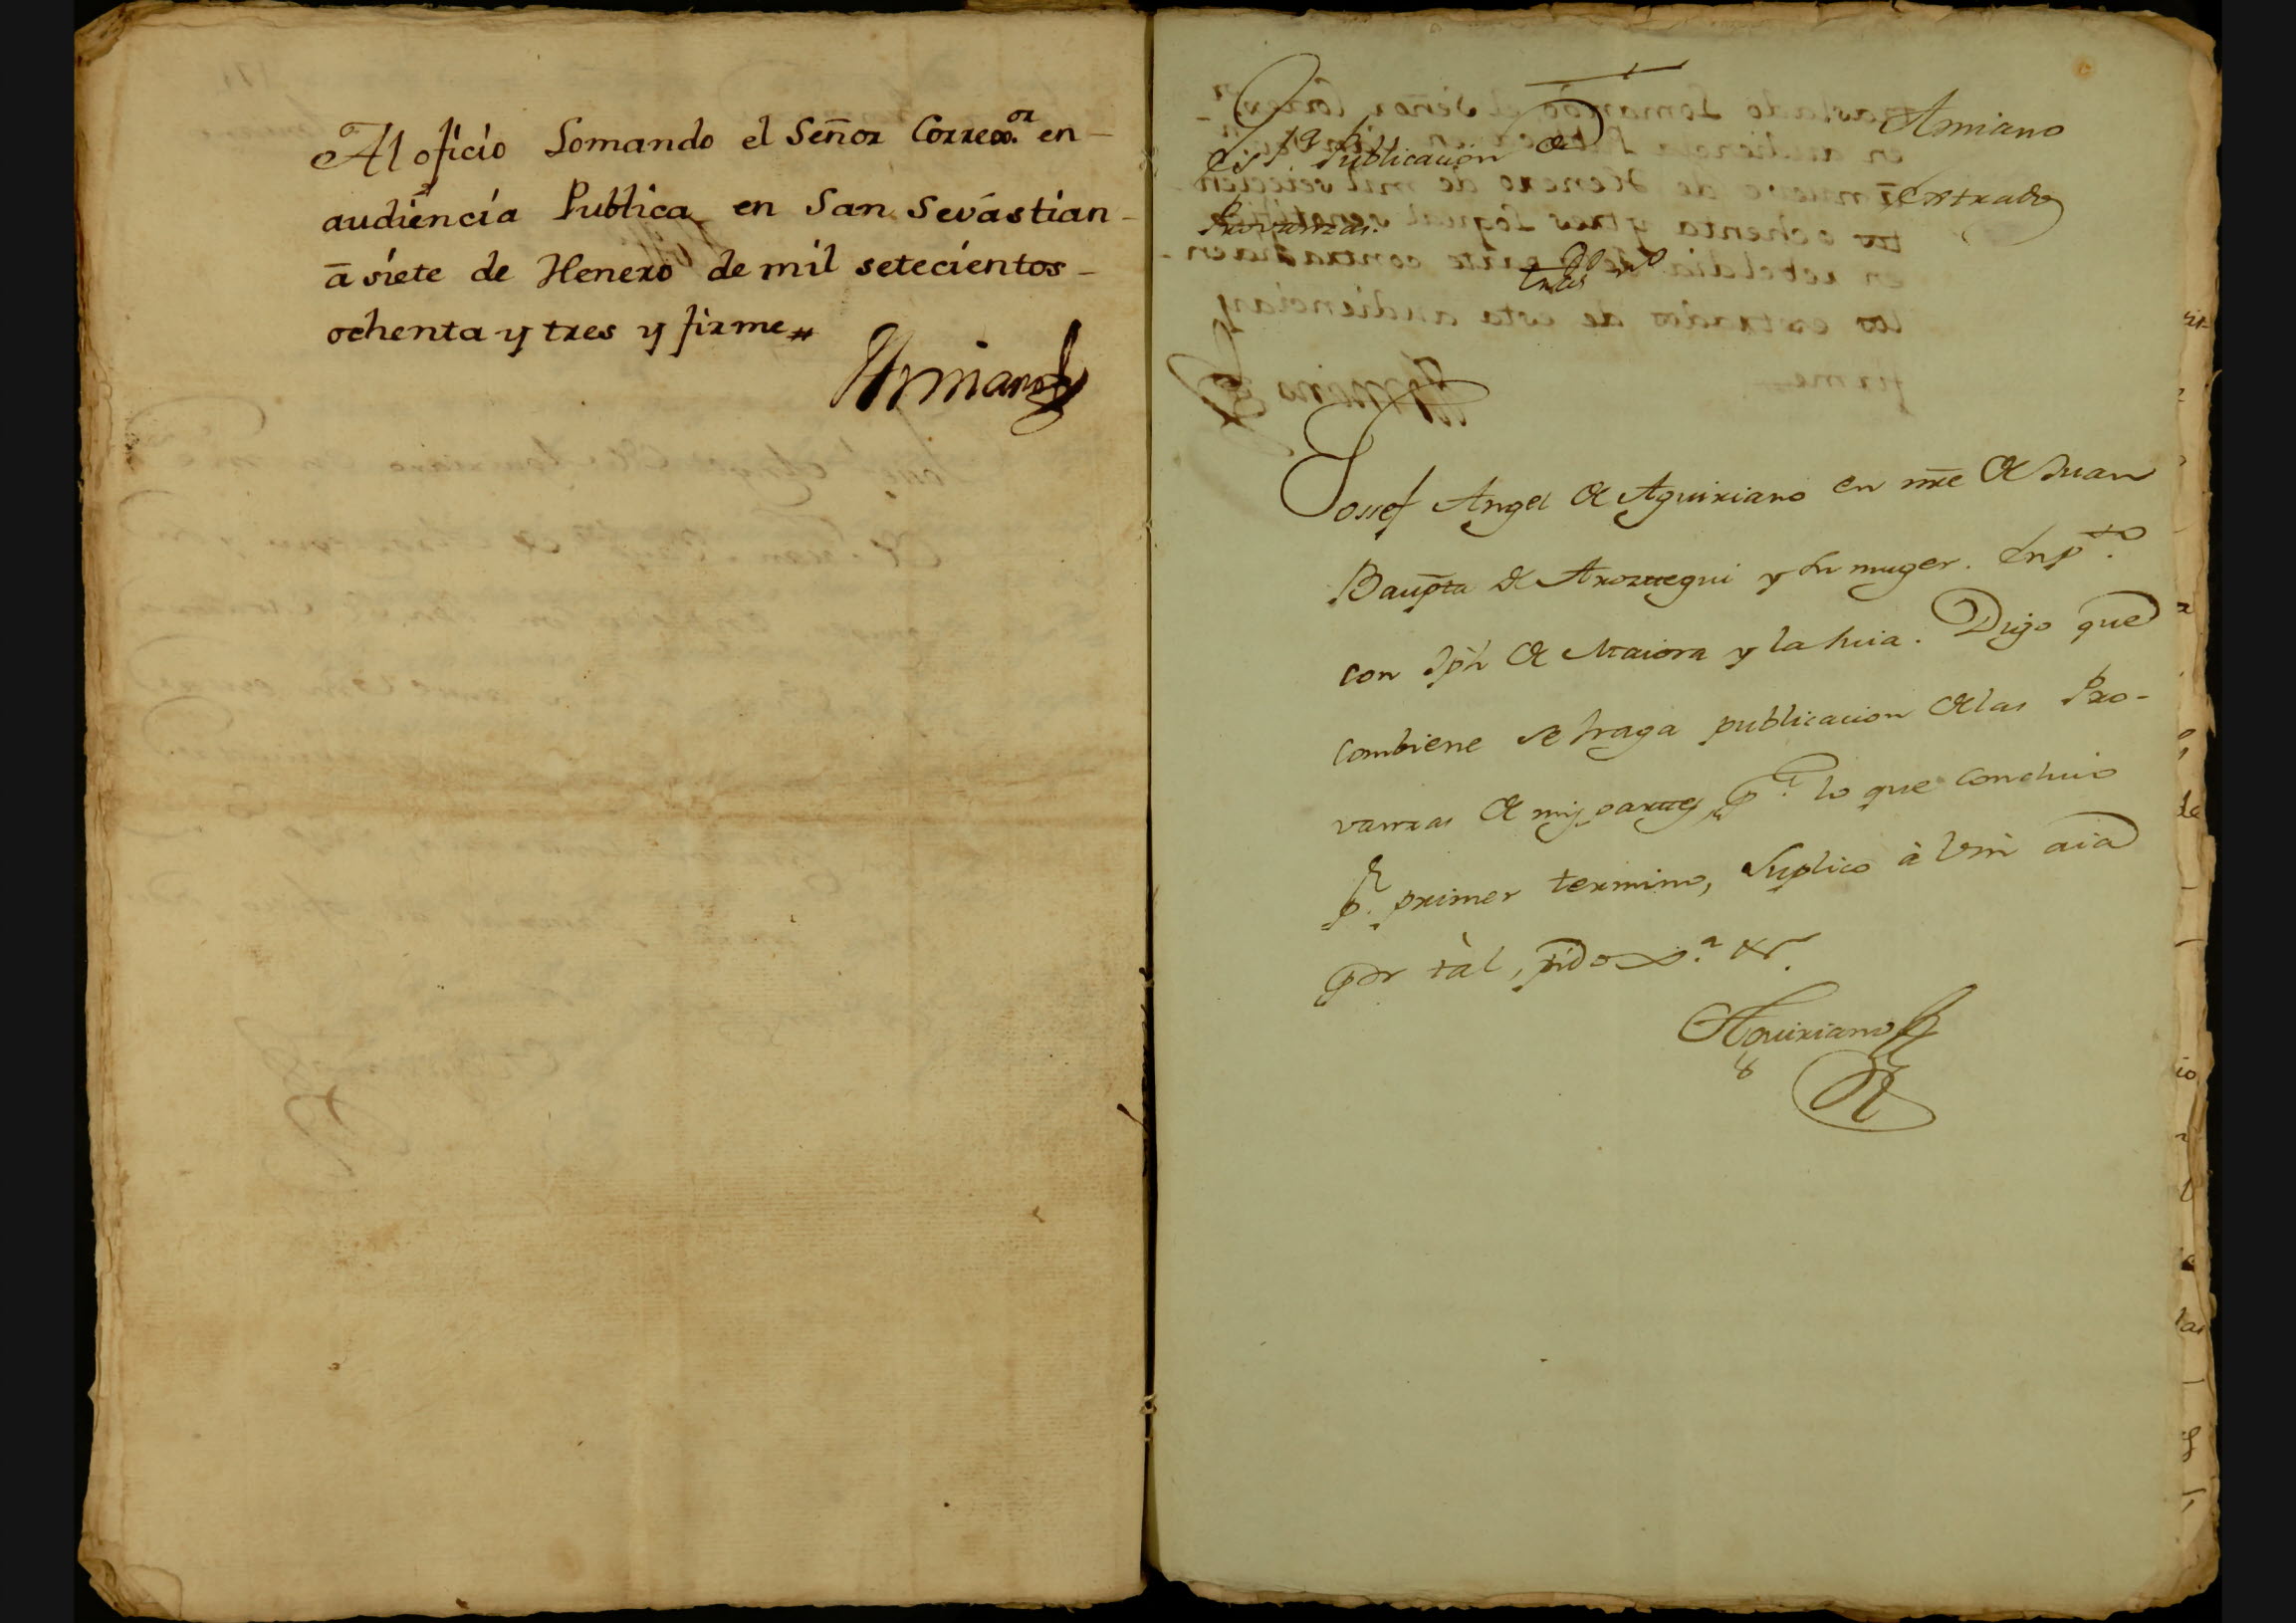 Al oficio Lomando el Señor Correx.or en-
audiencia Publica en San Sevastian-
ā siete de Henero de mil setecientos-
ochenta y tres y firme
Armiano
Armiano
Publicacion de
Estrados
Provanzas
Jossef Angel de Aguiriano en nr̄e de Juan
Baup̄ta de Arozttegui y su muger. En p.to
con Jph de Maiora y la suia. Digo que
combiene se haga publicacion de las Pro-
vanzas de mis parttes p.a lo que concluio
p.r primer termino, Suplico à Vm aia
por tàl, pido
Aguiriano